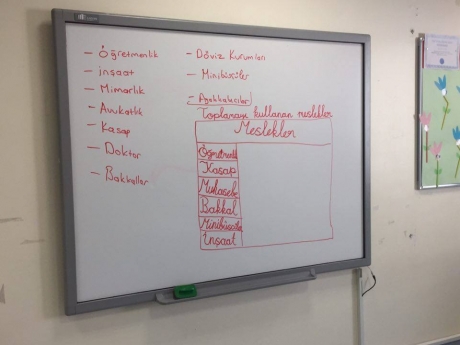 - Öğretmenlik
- inşaat
- Mimarlık
- Avukatlık
- Kasap
- Doktor
- Bakkallar
- Döviz Kurumları
- Minibüsçüler
- Ayakkabıcılar
Toplamayı kullanan meslekler
Meslekler
Öğretmenlik
Kasap
Muhasebe
Bakkal
Minibüscüler
İnşaat